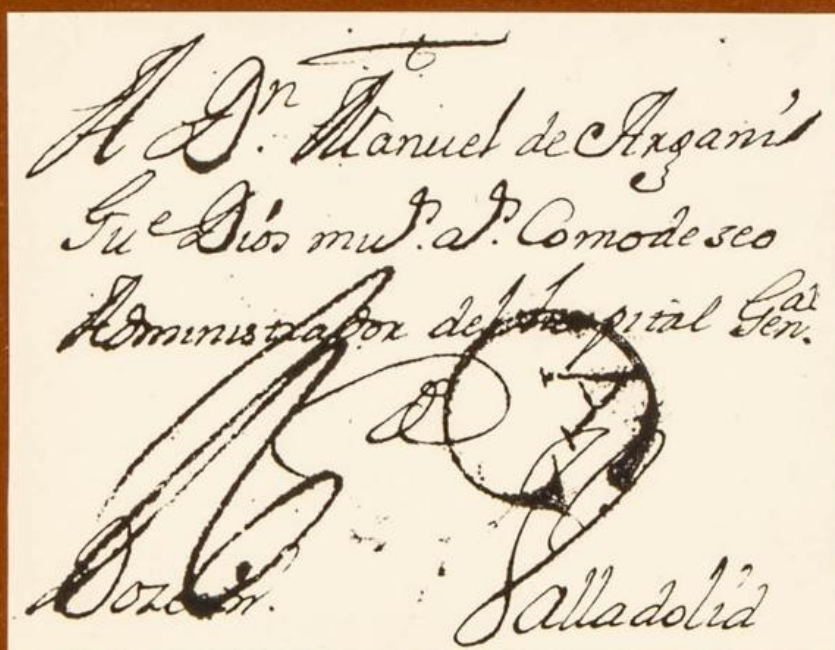 A Dn. Manuel de Argani
Gue Dios mus. as. Como deseo
Administrador del hospital Genal.
de
Valladolid